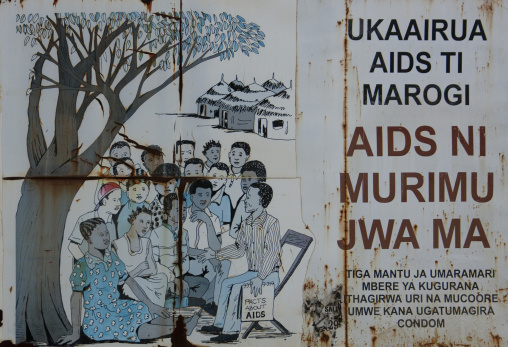 UKAAIRUA
AIDS TI
MAROGI
AIDS NI
MURIMU
JWA MA
TIGA MANTU JA UMARAMARI
MBERE YA KUGURANA
ITHAGIRWA URI NA MUCOORE
UMWE KANA UGATUMAGIRA
CONDOM
FACTS
ABOUT
AIDS